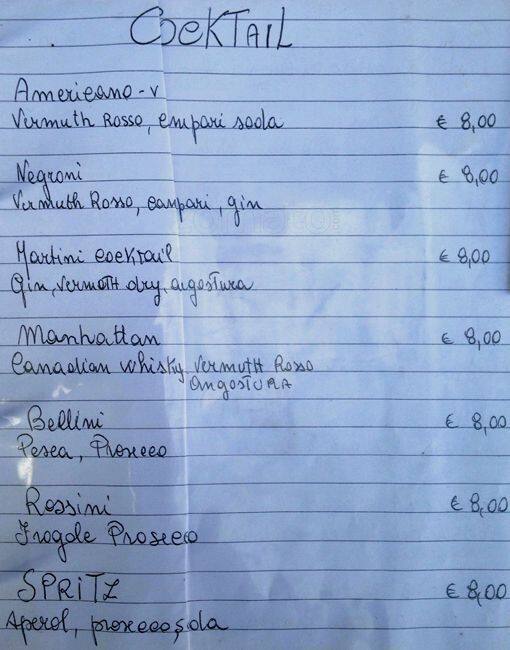 COCKTAIL
Americano - v
Vermuth Rosso, campari soda € 8,00
Negroni € 8,00
Vermuth Rosso, campari, gin
Martini cocktail € 8,00
Gin, vermoth dry, angostura
Manhattan € 8,00
Canadian whisky, Vermuth Rosso
angostura
Bellini € 8,00
Pesca, Prosecco
Rossini € 8,00
Fragole Prosecco
SPRiTZ € 8,00
Aperol, prosecco, soda